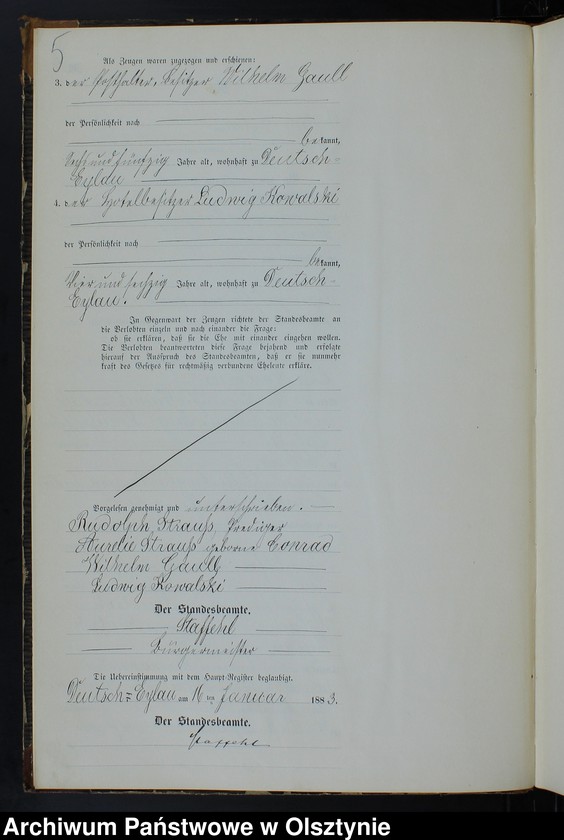 5
Als Zeugen waren zugezogen und erschienen:
3. der Posthalter, Besitzer Wilhelm Gaull
der Persönlichkeit nach
bekannt,
Sechsundfünfzig Jahre alt, wohnhaft zu Deutsch-
Eylau
4. der Hotelbesitzer Ludwig Kowalski
der Persönlichkeit nach
bekannt,
Vier und sechzig Jahre alt, wohnhaft zu Deutsch-
Eylau.
In Gegenwart der Zeugen richtete der Standesbeamte an
die Verlobten einzeln und nach einander die Frage:
ob sie erklären, daß sie die Ehe mit einander eingehen wollen.
Die Verlobten beantworteten diese Frage bejahend und erfolgte
hierauf der Ausspruch des Standesbeamten, daß er sie nunmehr
kraft des Gesetzes für rechtmäßig verbundene Eheleute erkläre.
Vorgelesen genehmigt und unterschrieben.
Rudolph Strauß, Prediger
Aurelie Strauß geborne Conrad
Wilhelm Gaull
Ludwig Kowalski
Der Standesbeamte.
Staffehl
Bürgermeister
Die Uebereinstimmung mit dem Haupt-Register beglaubigt.
Deutsch-Eylau am 16 ten Januar 1883.
Der Standesbeamte.
Staffehl
Archiwum Państwowe w Olsztynie